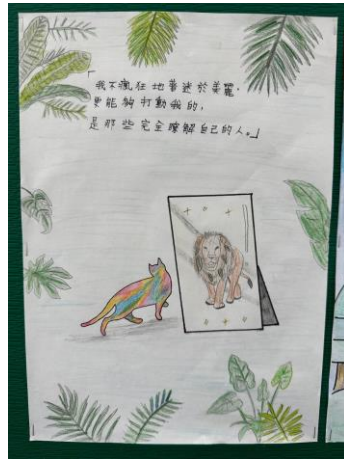 「我不瘋狂地著迷於美麗，
更能夠打動我的，
是那些完全瞭解自己的人。」